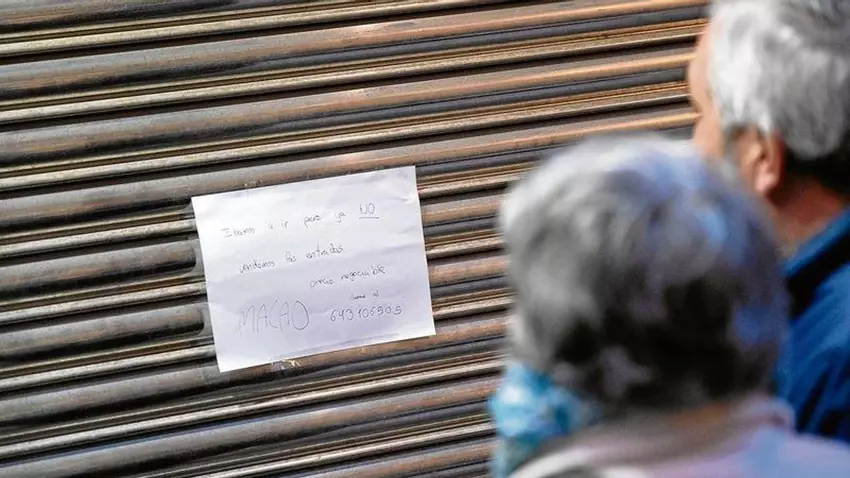 Ibamos a ir pero ya NO
vendemos las entradas
precio negociable
llamar al
MACAO 693106905